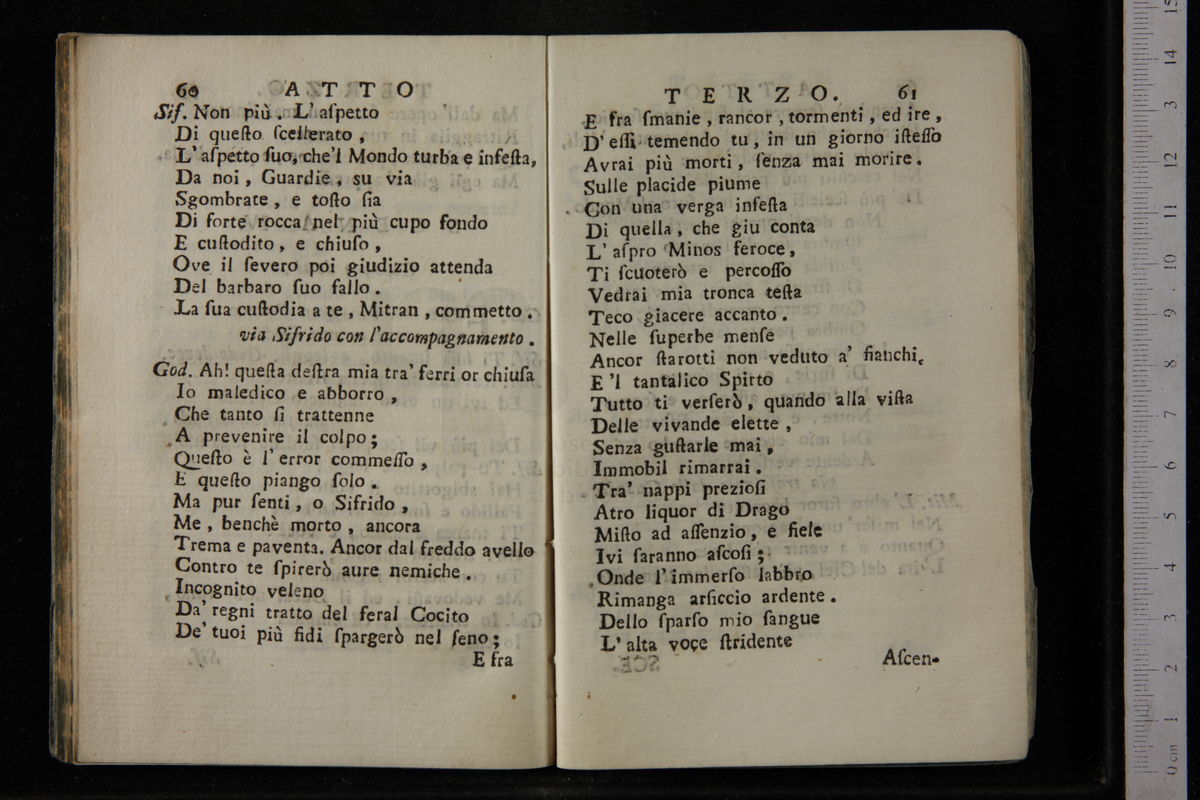 60 ATTO
Sif. Non più. L' aſpetto
Di queſto ſcellerato,
L' aſpetto ſuo, che'l Mondo turba e infeſta,
Da noi, Guardie, su via
Sgombrate, e toſto ſia
Di forte rocca nel più cupo fondo
E cuſtodito, e chiuſo,
Ove il ſevero poi giudizio attenda
Del barbaro ſuo fallo.
La ſua cuſtodia a te, Mitran, commetto.
via Sifrido con l'accompagnamento.
God. Ah! queſta deſtra mia tra' ferri or chiuſa
Io maledico e abborro,
Che tanto ſi trattenne
A prevenire il colpo;
Queſto è l' error commeſſo,
E queſto piango ſolo.
Ma pur ſenti, o Sifrido,
Me, benchè morto, ancora
Trema e paventa. Ancor dal freddo avello
Contro te ſpirerò aure nemiche.
Incognito veleno
Da' regni tratto del feral Cocito
De' tuoi più fidi ſpargerò nel ſeno;
E fra
TERZO. 61
E fra ſmanie, rancor, tormenti, ed ire,
D' eſſi temendo tu, in un giorno iſteſſo
Avrai più morti, ſenza mai morire.
Sulle placide piume
Con una verga infeſta
Di quella, che giu conta
L' aſpro Minos feroce,
Ti ſcuoterò e percoſſo
Vedrai mia tronca teſta
Teco giacere accanto.
Nelle ſuperbe menſe
Ancor ſtarotti non veduto a' fianchi,
E 'l tantalico Spirto
Tutto ti verſerò, quando alla viſta
Delle vivande elette,
Senza guſtarle mai,
Immobil rimarrai.
Tra' nappi prezioſi
Atro liquor di Drago
Miſto ad aſſenzio, e fiele
Ivi ſaranno aſcoſi;
Onde l' immerſo labbro
Rimanga arſiccio ardente.
Dello ſparſo mio ſangue
L' alta voce ſtridente
Aſcen-